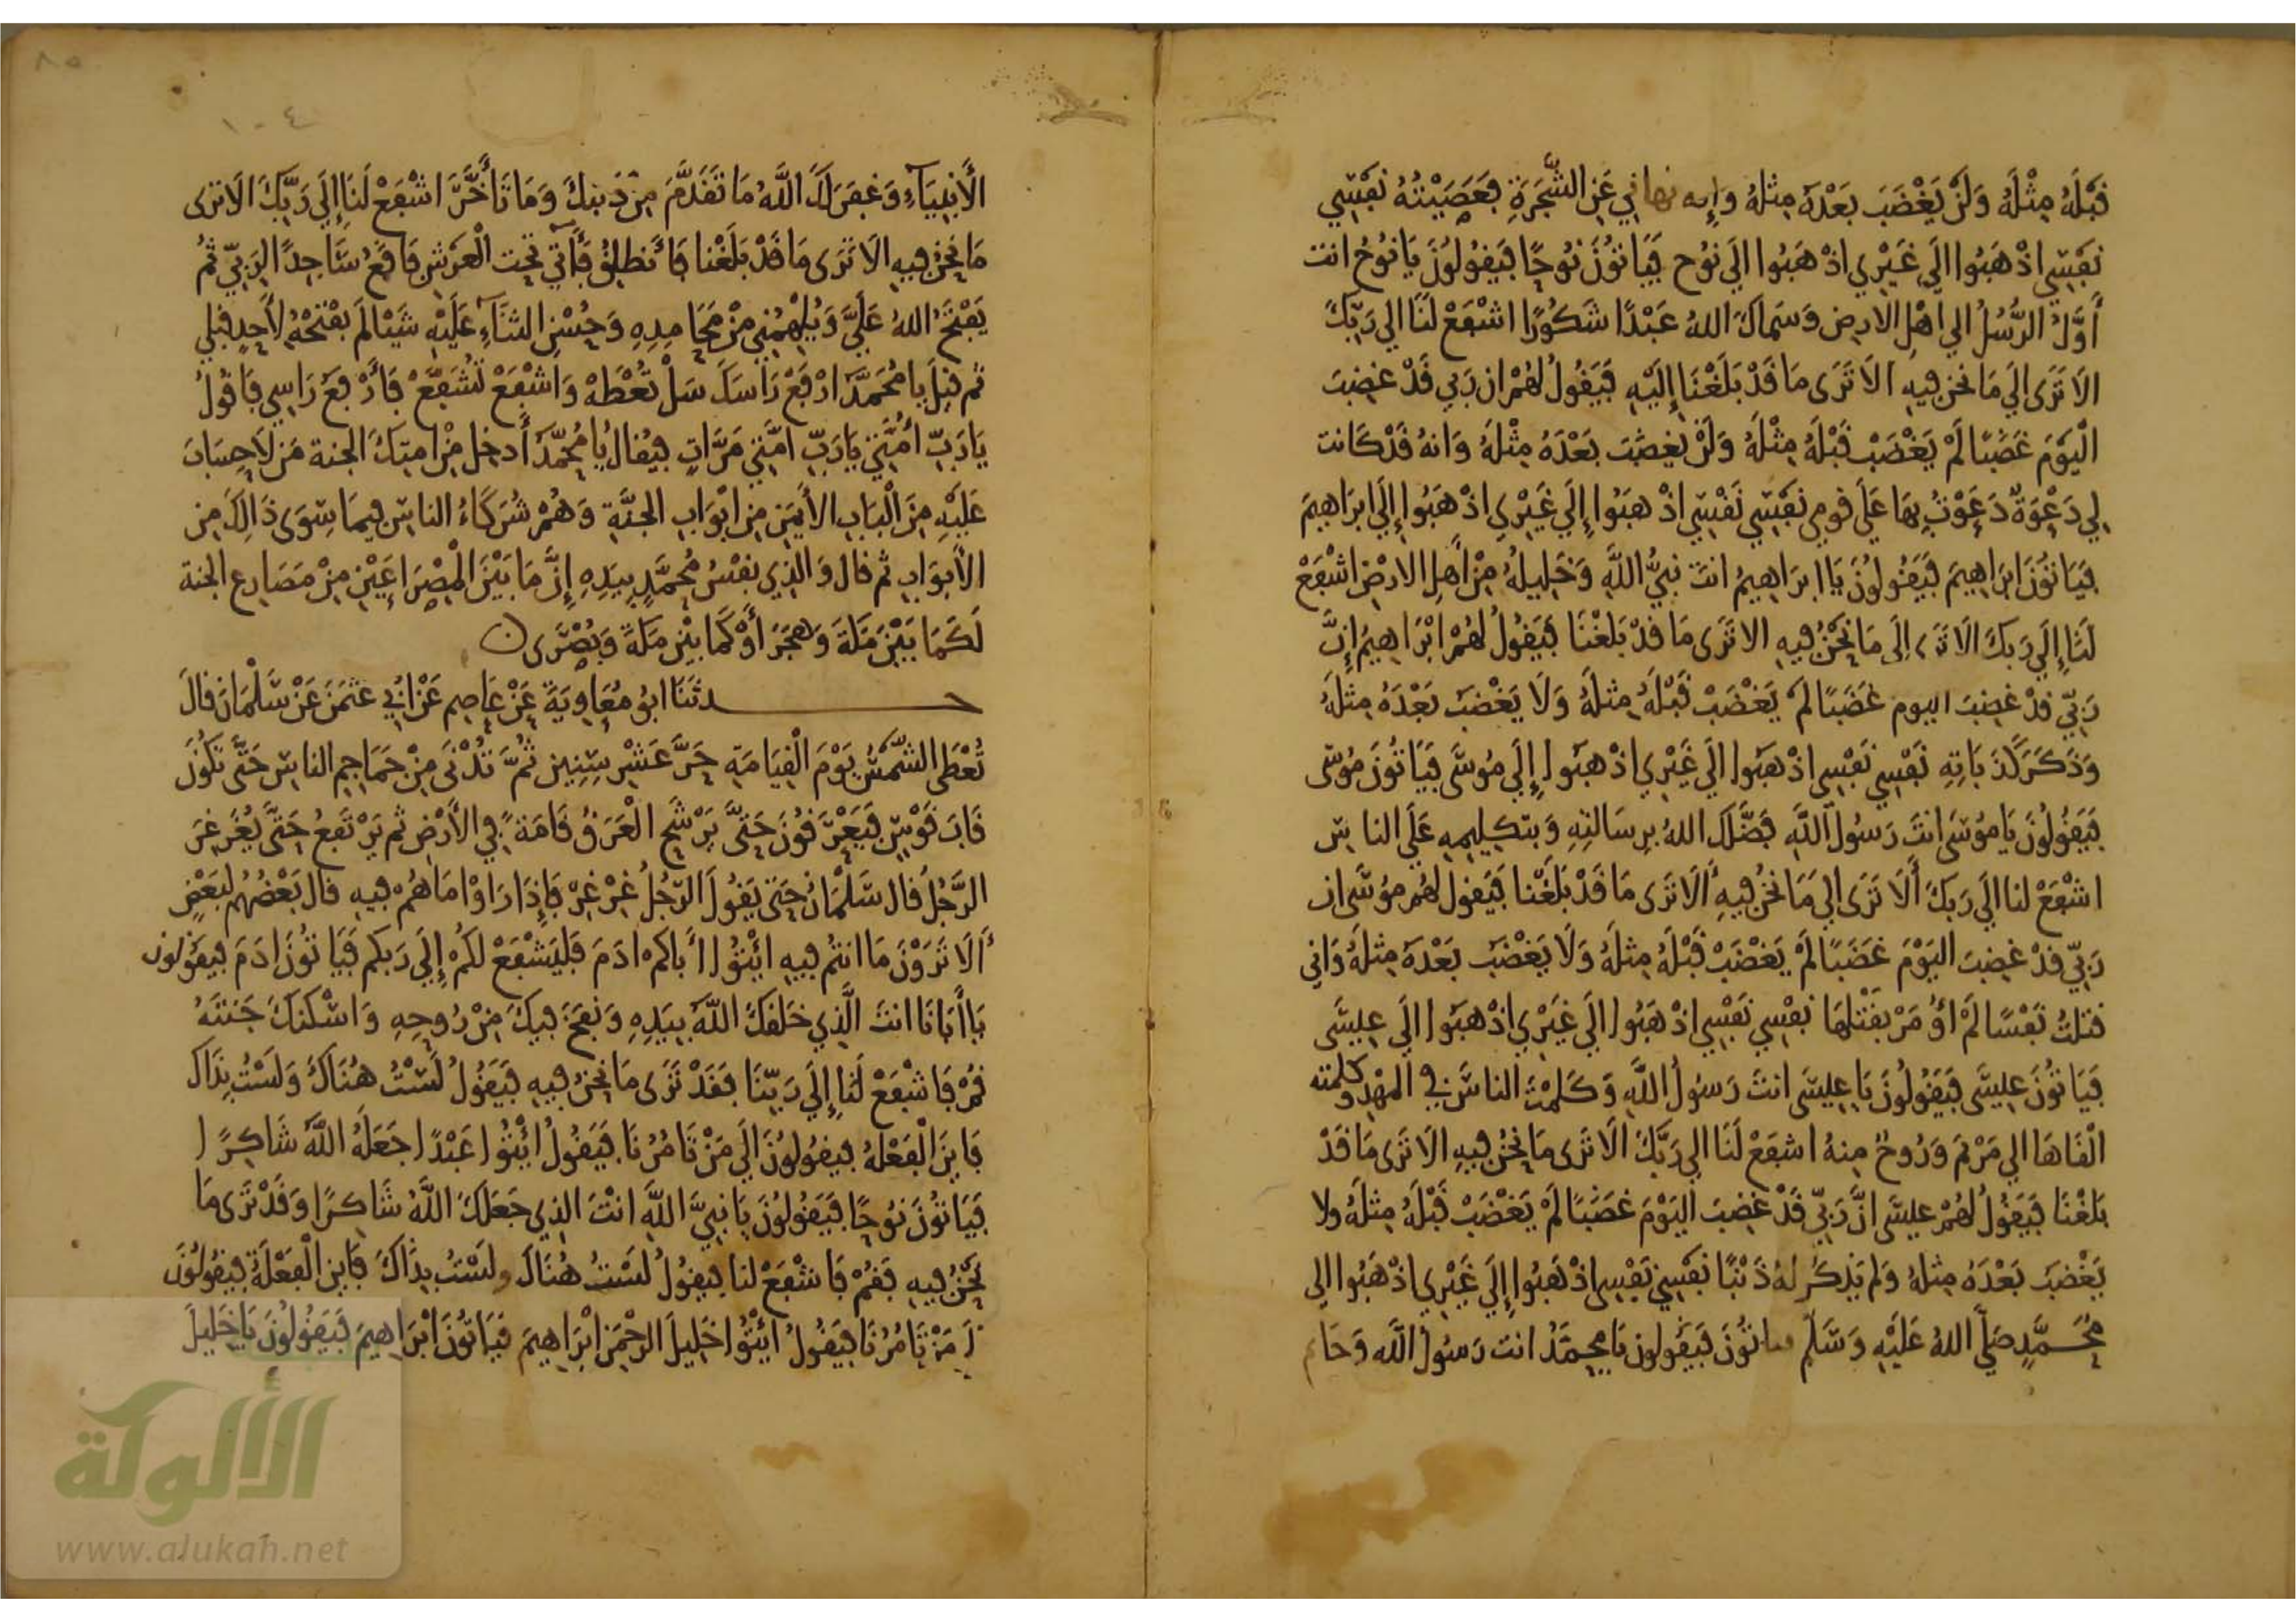 قَبْلَهُ مِثْلَهُ وَلَنْ يَغْضَبَ بَعْدَهُ مِثلهُ وإنه نهاني عَنِ الشَّجَرَةِ فعَصَيْتُهُ نفسِي
نفسِي اذْهَبُوا إلَي غَيْرِي اذْهَبُوا الَي نُوح فيَاتُونَ نُوحًا فيَقُولُونَ يَا نُوحُ انت
أَوَّلُ الرُّسُلُ الي اهْلِ الارض وَسَماكَ اللهُ عَبْدًا شَكُورًا اشْفَعْ لَنَا الي رَبِّكَ
الا تَرَى الي مَا نحن فيهِ الا تَرَى مَا قَدْ بَلَغْنَا إلَيْهِ فيَقُولُ لهُمْ ان رَبي قَدْ غضِبَ
الْيَوْمَ غَضَبًا لَمْ يَغْضَبْ قَبْلَهُ مِثْلَهُ وَلَنْ يغضَبَ بَعْدَهُ مِثْلَهُ وَانهُ قَدْ كَانت
لِي دَعْوَةٌ دَعَوْتُ بِهَا عَلَى قومي نفسِي نَفْسِي اذْهَبُوا إِلَي غَيْرِي اذْهَبُوا إِلَي ابرَاهِيمَ
فيَاتُونَ ابرَاهِيمَ فيَقُولُونَ يَا ابرَاهِيمُ انتَ نبيُّ اللَّهِ وَخَلِيلهُ مِنْ أَهلِ الارْضِ اشْفَعْ
لَنَا إِلَي رَبكَ الا تَرَى إِلَى مَا نحْنُ فيهِ الا تَرَى مَا قدْ بَلَغْنَا فيَقُولُ لهُمْ ابْرَاهِيمُ إِنَّ
رَبّي قدْ غضِبَ اليوم غَضَبًا لَمْ يَغْضَبْ قَبْلَهُ مِثلَهُ وَلَا يَغْضَبَ بَعْدَهُ مِثلَهُ
وَذَكَرَ كَذَبَاتِهِ نَفْسِي نَفْسِي اذْهَبُوا الَي غَيْرِي اذْهَبُوا إِلَي مُوسَى فيَاتُونَ مُوسَى
فيَقُولُونَ يَا مُوسَى انتَ رَسُولُ اللَّهِ فضَّلَكَ اللهُ برِسَالتِهِ وَبتكلِيمِهِ عَلَي الناسِ
اشْفَعْ لنا الَي رَبكَ أَلا تَرَى إلي مَا نَحْنُ فيهِ أَلا تَرَى مَا قَدْ بَلَغْنَا فيَقول لهُم موسَى ان
رَبّي قدْ غضِبَ اليَوْمَ غَضَبًا لَمْ يَغْضَبْ قَبْلَهُ مِثلَهُ وَلَا يَغْضَبَ بَعْدَهُ مِثلَهُ وَاني
قتلتُ نَفْسًا لَمْ أُؤمَرْ بقَتْلهَا نفْسِي نَفْسِي اذْهَبُوا الَي غَيْرِي اذْهَبُوا الَي عِيسَى
فيَاتُونَ عِيسَى فيَقُولُونَ يَا عِيسَى انتَ رَسُولُ اللَّهِ وَكَلمْتَ الناسَ في المهْدِ وكلمته
الْقَاهَا الي مَرْيَمَ وَرُوحٌ مِنهُ اشفَعْ لَنَا الي رَبِّكَ الا تَرَى مَا نحْنُ فيهِ الا تَرَى مَا قَدْ
بَلَغْنَا فيَقُولُ لهُمْ عيسَى انَّ رَبّي قَدْ غضِبَ اليَوْمَ غَضَبًا لَمْ يَغْضَبْ قَبْلَهُ مِثلَهُ ولا
يَغْضَبَ بَعْدَهُ مِثلهُ وَلم يَذكُر لهُ ذَنْبًا نَفْسِي نَفْسِي اذْهَبُوا إِلَي غَيْرِي اذْهَبُوا الي
مُحَمَّدٍ صَلَّي اللهُ عَلَيْهِ وَسَلَّم فياتُونَ فيَقُولونَ يَا محمَّدُ انت رَسُولُ اللَّه وَخَاتم
الأَنبِيَآءِ وَغفَرَ لَكَ اللَّهُ مَا تَقَدَّمَ مِنْ ذَنبكَ وَمَا تَأَخَّرَ اشْفَعْ لَنَا إِلَي رَبِّكَ الا تَرى
مَا نَحْنُ فيهِ الا تَرَى مَا قَدْ بَلَغْنا فأَنطلِقُ فَآتي تحت الْعَرْشِ فَاقَعُ سَاجِدًا لِرَبّي ثُم
يَفْتَحُ اللهُ عَلَيَّ وَيُلهِمُني مِنْ مَحَامِدِهِ وَحُسْنِ الثنَآءِ عَلَيْهِ شَيْئا لَمْ يفْتَحْهُ لأَحِدٍ قبلي
ثم قيلَ يا مُحَمَّدُ ارْفَعْ رَاسَكَ سَلْ تُعْطَهْ وَاشْفَعْ تُشَفَّعْ فَأَرْفَعُ رَاسِي فَاقُولُ
يَا رَبِّ أُمَّتِي يَا رَبِّ امَّتِي مَرَّاتٍ فيُقالُ يَا مُحَمَّدُ أَدخِل مِنْ امتِكَ الجنة مَن لَا حِسَابَ
عَلَيْهِ مِنَ الْبَابِ الأَيْمَنِ مِن ابْوَابِ الجَنَّةِ وَهُمْ شُرَكَاءُ الناسِ فيمَا سِوَى ذَالِكَ مِن
الأَبوَابِ ثم قال وَالذِي نفْسُ مُحَمَّدٍ بِيَدِهِ إِنَّ مَا بَيْنَ الْمِصْرَاعَيْنِ مِنْ مَصَارِعِ الجنة
لَكَمَا بَيْنَ مَكَّةَ وَهجَرَ أَوْ كَمَا بَيْنَ مَكَّةَ وَبُصْرَى
حدثَنَا ابُو مُعَاوِيَةَ عَنْ عَاصِم عَنْ ابي عثمَنَ عَنْ سَلْمَانَ قالَ
تُعْطَى الشَّمْسُ يَوْمَ الْقِيَامَةِ حَرَّ عَشْرِ سِنِين ثُمَّ تُدْنَى مِنْ جَمَاجِمِ الناسِ حَتَّى تَكُونَ
قَابَ قَوْسَيْنِ فيَعْرَقُونَ حَتَّى يَرْشَحَ الْعَرَقُ قَامَةً في الأَرْضِ ثم يَرْتَفِعُ حَتَّى يُغَرْغِرَ
الرَّجُلُ قال سَلْمَانُ حَتَّى يَقُولَ الرّجُلُ غرْ غرْ فَإِذَا رَاوْا مَا هُمْ فيهِ قال بَعْضُهُم لبَعْضٍ
أَلا تَرَوْنَ مَا انتُم فيهِ ايْتُوا أَبَاكم ادَمَ فليَشْفَعْ لكُمْ إِلَي رَبكم فيَاتُونَ ادَمَ فيَقولون
يَا أَبَانَا انتَ الَّذِي خَلَقَكَ اللَّهُ بيَدِهِ وَنَفَخَ فيكَ مِنْ رُوحِهِ وَاسْكَنكَ جَنتَهُ
قمْ فَاشْفَعْ لَنَا إِلَي رَبِّنَا فقَدْ تَرَى مَا نحْنُ فيهِ فيَقُولُ لَسْتُ هُنَاكَ وَلَسْتُ بذَاكَ
فَايْنَ الْفَعْلهُ فيقُولُونَ الَي مَنْ تَامُرُنَا فيَقُولُ ائْتُوا عَبْدًا جَعَلَهُ اللَّهُ شَاكِرًا
فيَاتُونَ نُوحًا فيَقُولُونَ يَا نبِيَّ اللَّهِ انْتَ الذِي جَعَلَكَ اللَّهُ شَاكِرًا وَقَدْ تَرَى مَا
نَحْنُ فيهِ فقُمْ فَاشْفَعْ لنا فيقُولُ لسْتُ هُنَاكَ ولسْتُ بِذَاكَ فَاينَ الْفَعْلَةُ فيقُولُونَ
إلَي مَنْ تَامُرُنَا فيَقُولُ ائْتُوا خَلِيلَ الرحْمَنِ ابْرَاهِيمَ فيَاتُونَ ابْرَاهِيمَ فيَقُولُونَ يَا خَلِيلَ
الألوكة
www.alukah.net